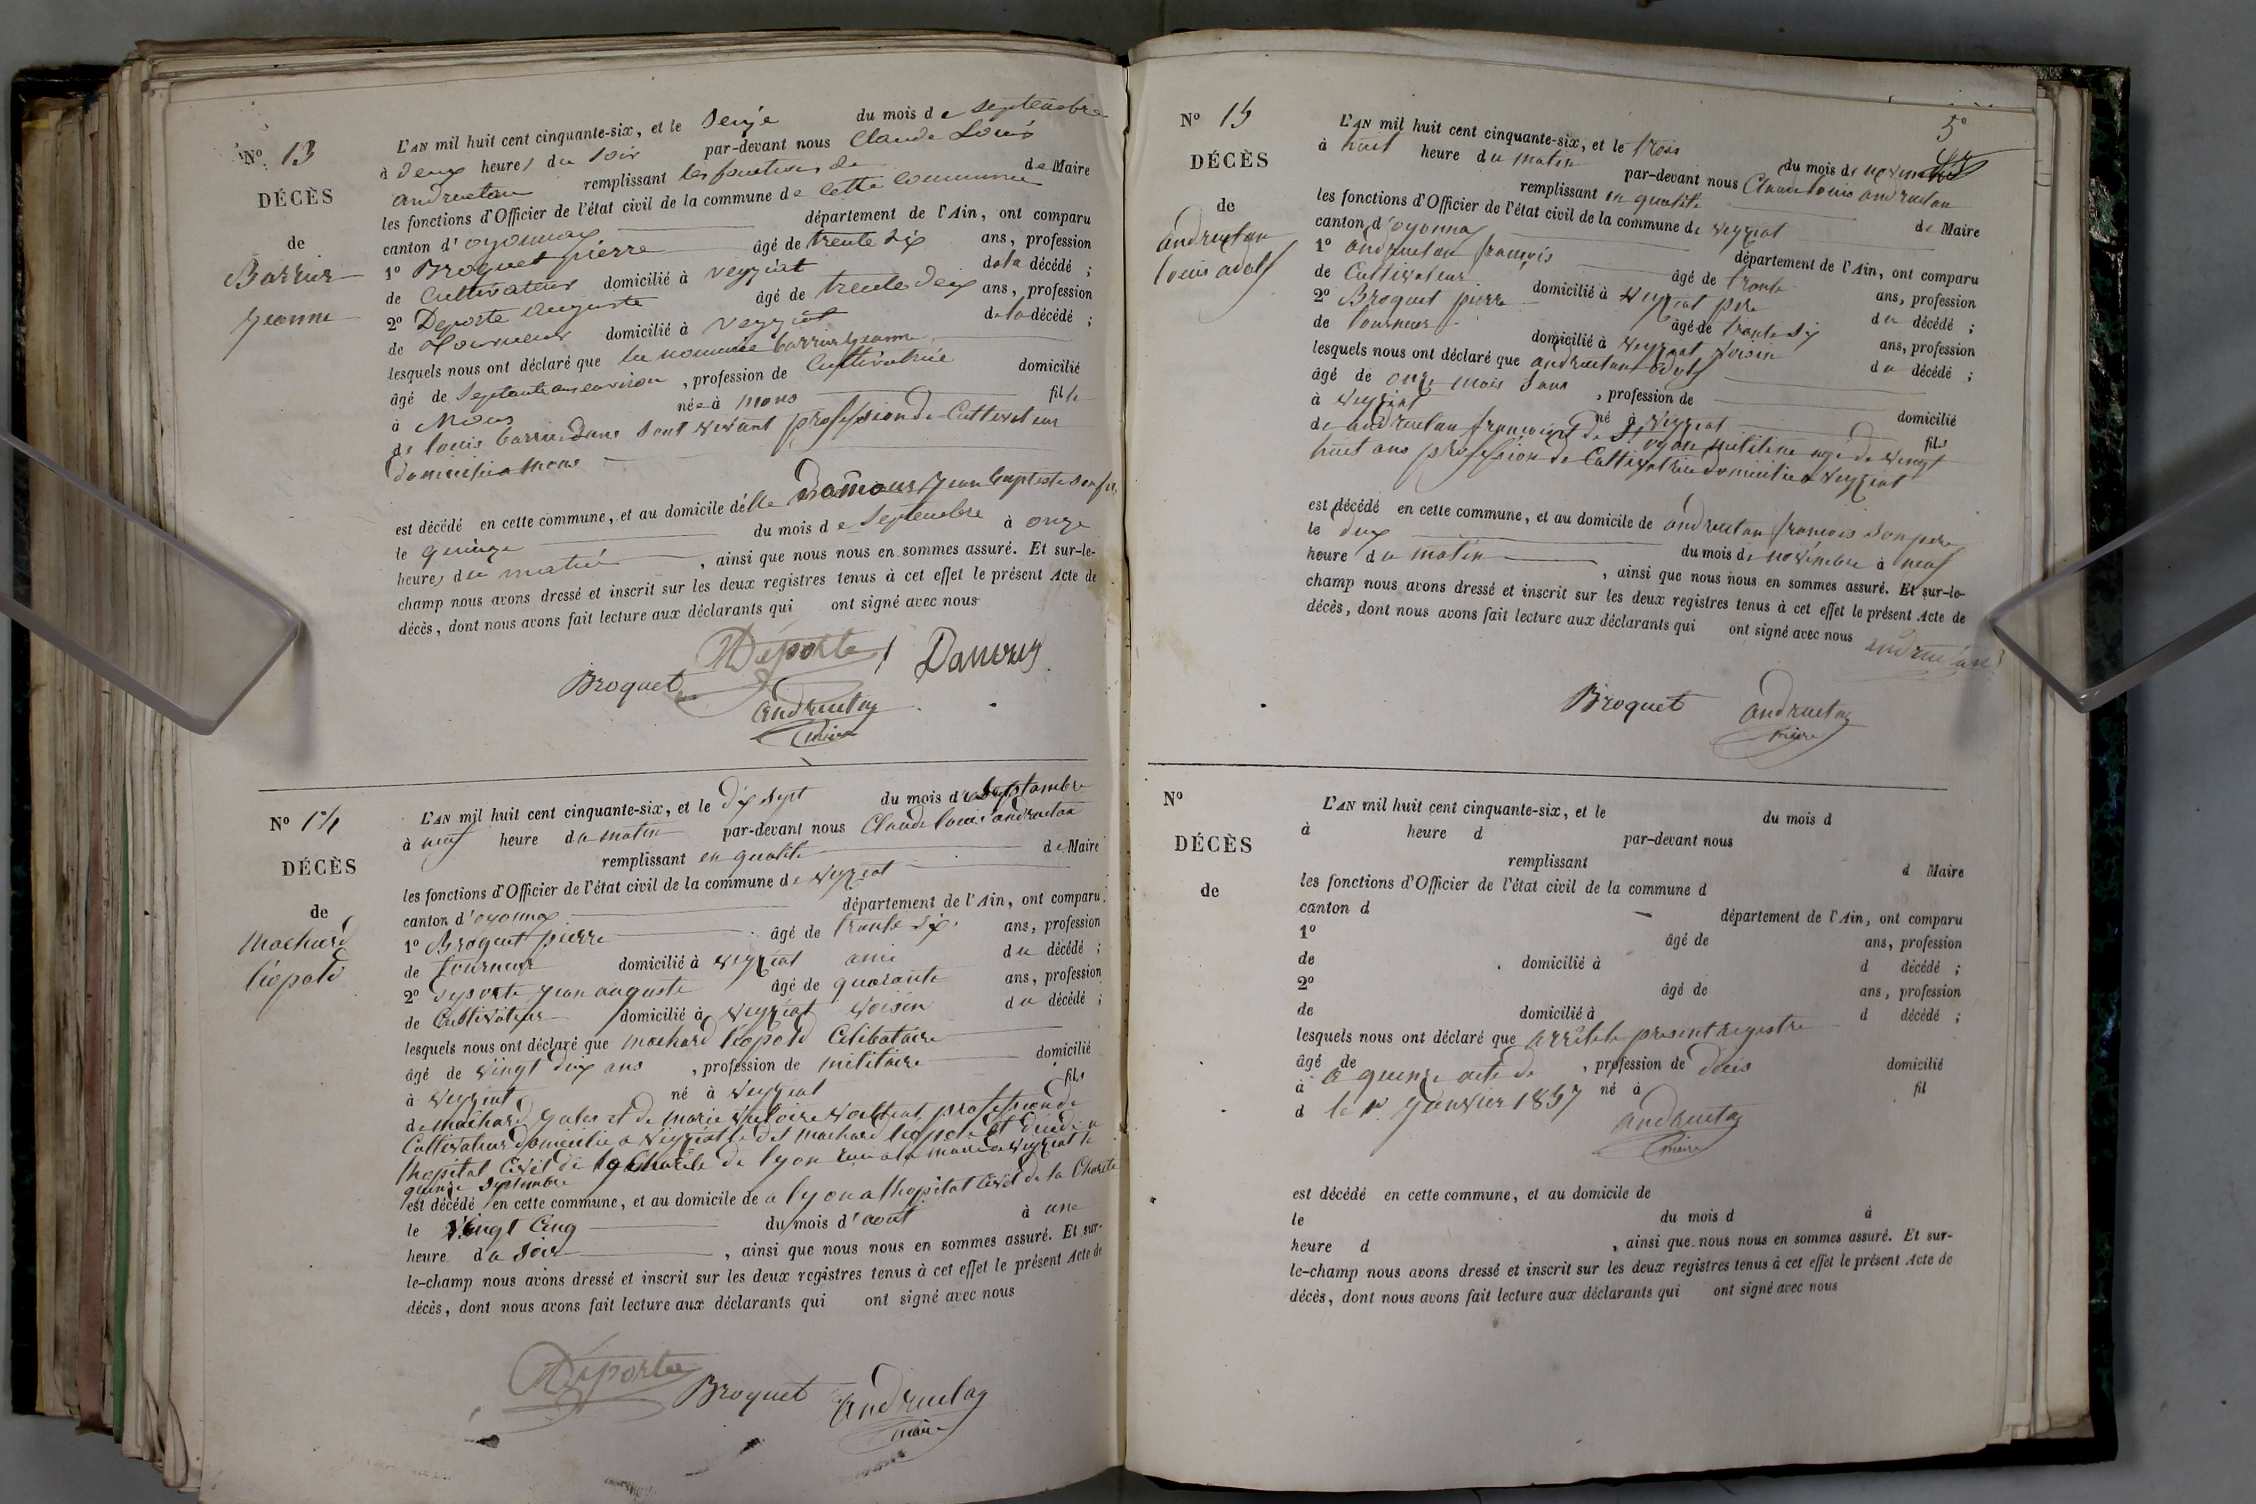 No 13
DÉCÈS
de
Barrier
Jeanne
L'AN mil huit cent cinquante-six, et le seize du mois de septembre
à deux heures du soir par-devant nous Claude Louis
andruetan remplissant les fonctions de de Maire
les fonctions d'Officier de l'état civil de la commune de cette commune
canton d'oyonnax département de l'Ain, ont comparu
1o Broquet pierre âgé de trente six ans, profession
de Cultivateur domicilié à veyziat de la décédé ;
2o Deporte auguste âgé de trente deux ans, profession
de tourneur domicilié à veyziat de la décédé ;
lesquels nous ont déclaré que la nommée barrier jeanne
âgé de septante ans environ , profession de Cultivatrice domicilié
à Mons née à mons fille
de louis barrier sont vivant profession de Cultivateur
domicilié a mons
est décédé en cette commune, et au domicile de Damour jean baptiste son fils
le quinze du mois de Septembre à onze
heures du matin , ainsi que nous nous en sommes assuré. Et sur-le-
champ nous avons dressé et inscrit sur les deux registres tenus à cet effet le présent Acte de
décès, dont nous avons fait lecture aux déclarants qui ont signé avec nous
Déporte
Damour
Broquet
andruetan
maire
No 14
DÉCÈS
de
Machard
léopold
L'AN mil huit cent cinquante-six, et le dix sept du mois de septambre
à neuf heure du matin par-devant nous Claude louis andruetan
remplissant en qualité de Maire
les fonctions d'Officier de l'état civil de la commune de veyziat
canton d'oyonnax département de l'Ain, ont comparu
1o Broquet pierre âgé de trente six ans, profession
de tourneur domicilié à veyziat ami du décédé ;
2o deporte jean auguste âgé de quarante ans, profession
de Cultivateur domicilié à veyziat voisin du décédé ;
lesquels nous ont déclaré que machard léopold Célibataire
âgé de vingt deux ans , profession de militaire domicilié
à veyziat né à veyziat fils
de machard jules et de marie victoire profession de
Cultivateur domicilié a veyziat le dit machard léopold et décédé a
lhopital Civil de la Charité de lyon
quinze septembre
est décédé en cette commune, et au domicile de a lyon a lhopital civil de la Charité
le vingt Cinq du mois d'aout à une
heure du soir , ainsi que nous nous en sommes assuré. Et sur-
le-champ nous avons dressé et inscrit sur les deux registres tenus à cet effet le présent Acte de
décès, dont nous avons fait lecture aux déclarants qui ont signé avec nous
Déporte
Broquet
andruetan
maire
5e
No 15
DÉCÈS
de
andruetan
louis adolf
L'AN mil huit cent cinquante-six, et le trois du mois de novembre
à huit heure du matin par-devant nous Claude louis andruetan
remplissant en qualité de Maire
les fonctions d'Officier de l'état civil de la commune de veyziat
canton d'oyonnax département de l'Ain, ont comparu
1o andruetan françois âgé de trente ans, profession
de Cultivateur domicilié à veyziat pere du décédé ;
2o Broquet pierre âgé de trente six ans, profession
de tourneur domicilié à veyziat voisin du décédé ;
lesquels nous ont déclaré que andruetan adolf
âgé de onze mois , profession de domicilié
à veyziat né à veyziat fils
de andruetan françois et de agé de vingt
huit ans profession de Cultivatrice domicilié a veyziat
est décédé en cette commune, et au domicile de andruetan francois son pere
le deux du mois de novembre à neuf
heure du matin , ainsi que nous nous en sommes assuré. Et sur-le-
champ nous avons dressé et inscrit sur les deux registres tenus à cet effet le présent Acte de
décès, dont nous avons fait lecture aux déclarants qui ont signé avec nous
Broquet
andruetan
maire
No
DÉCÈS
de
L'AN mil huit cent cinquante-six, et le du mois d
à heure d par-devant nous
remplissant d Maire
les fonctions d'Officier de l'état civil de la commune d
canton d département de l'Ain, ont comparu
1o âgé de ans, profession
de domicilié à d décédé ;
2o âgé de ans, profession
de domicilié à d décédé ;
lesquels nous ont déclaré que arrêté le present registre
âgé de a quinze acte de , profession de décis domicilié
à né à fil
d le 1r janvier 1857
andruetan
maire
est décédé en cette commune, et au domicile de
le du mois d à
heure d , ainsi que nous nous en sommes assuré. Et sur-
le-champ nous avons dressé et inscrit sur les deux registres tenus à cet effet le présent Acte de
décès, dont nous avons fait lecture aux déclarants qui ont signé avec nous